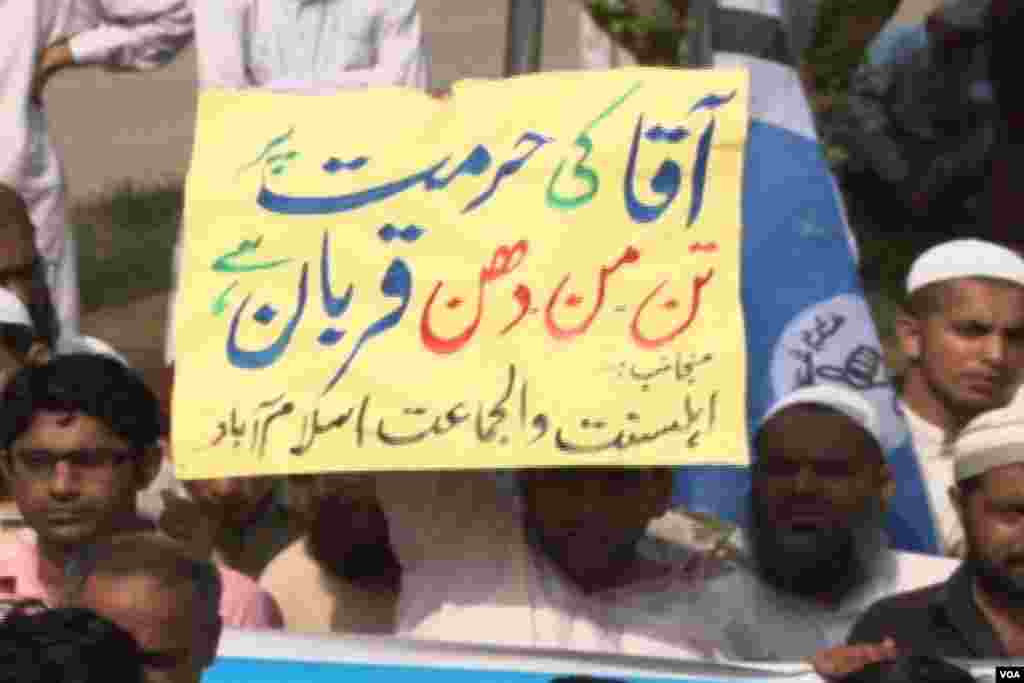 آقا کی حرمت پر
تن من دھن قربان ہے
منجانب:
اہلسنت والجماعت اسلام آباد
VOA